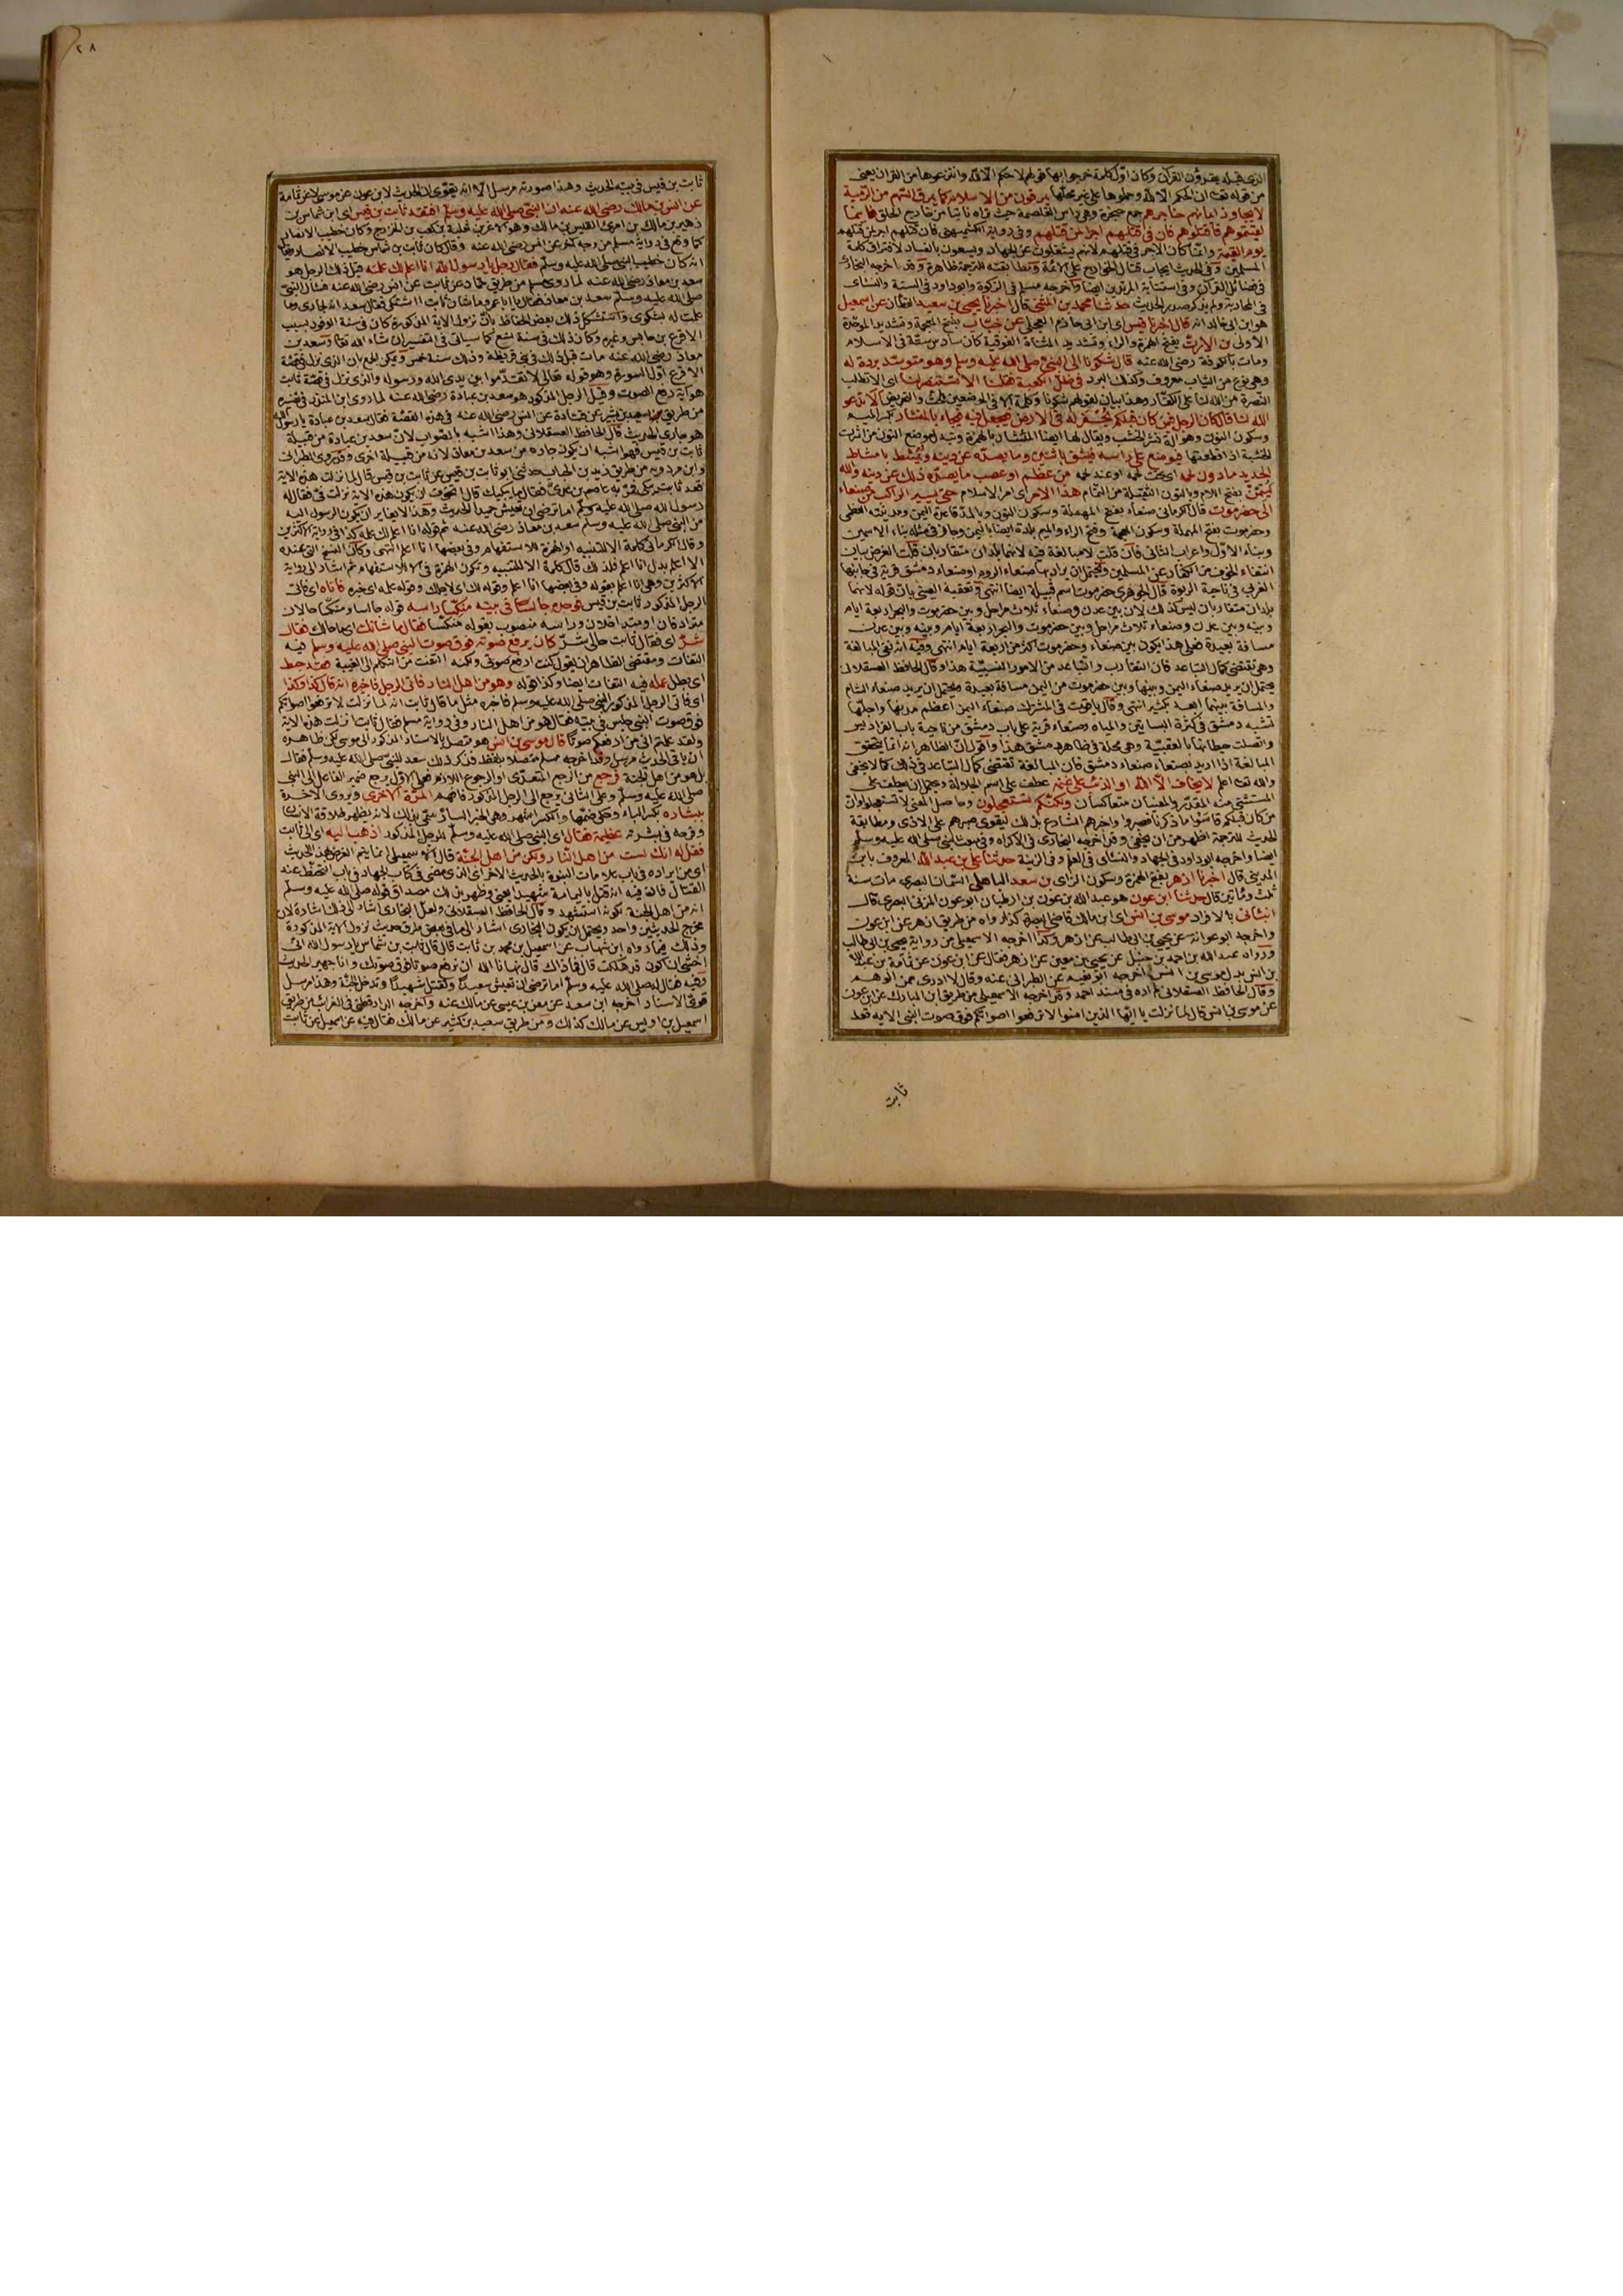 الذى قبله يقرؤن القرآن وكان اول كلمة خرجوا بها قولهم لا حكم الا لله وانتزعوها من القرآن يعنى
من قوله تعالى ان الحكم الا لله وحملوها على غير محلها يمرقون من الاسلام كما يمرق السهم من الرمية
لا يجاوز ايمانهم حناجرهم جمع حنجرة وهى راس الغلصمة حيث تراه ناتئا من خارج الحلق فاينما
لقيتموهم فاقتلوهم فان فى قتلهم اجرا لمن قتلهم وفى رواية الكشميهنى فان قتلهم اجر لمن قتلهم
يوم القيمة وانما كان الاجر فى قتلهم لانهم يشغلون عن الجهاد ويسعون بالفساد لافتراق كلمة
المسلمين وفى الحديث ايجاب قتال الخوارج على الائمة ومطابقته للترجمة ظاهرة وقد اخرجه البخارى
فى فضائل القرآن وفى استتابة المرتدين ايضا واخرجه مسلم فى الزكوة وابو داود فى السنة والنسائى
فى المحاربة ولم يذكر صدر الحديث حدثنا محمد بن المثنى قال اخبرنا يحيى بن سعيد القطان عن اسمعيل
هو ابن ابى خالد انه قال اخبرنا قيس اى ابن ابى حازم البجلى عن خباب بفتح المعجمة وتشديد الموحدة
الاولى بن الارت بفتح الهمزة والراء وتشديد المثناة الفوقية كان سادس ستة فى الاسلام
ومات بالكوفة رضى الله عنه قال شكونا الى النبى صلى الله عليه وسلم وهو متوسد بردة له
وهى نوع من الثياب معروف وكذلك البرد فى ظل الكعبة فقلنا الا تستنصر لنا اى الا تطلب
النصرة من الله لنا على الكفار وهذا بيان لقولهم شكونا وكلمة الا فى الموضعين للحث والتحريض الا تدعو
الله لنا قال كان الرجل فيمن كان قبلكم يحفر له فى الارض فيجعل فيه فيجاء بالمنشار بكسر الميم
وسكون النون وهو آلة نشر الخشب ويقال لها ايضا المئشار بالهمزة
الخشبة اذا قطعتها فيوضع على راسه فيشق باثنين وما يصده عن دينه ويمشط بامشاط
الحديد ما دون لحمه اى تحت لحمه او عند لحمه من عظم او عصب ما يصده ذلك عن دينه والله
ليتمن بفتح اللام وبالنون الثقيلة من التمام هذا الامر اى امر الاسلام حتى يسير الراكب من صنعاء
الى حضرموت قال الكرمانى صنعاء بفتح المهملة وسكون النون وبالمد قاعدة اليمن ومدينته العظمى
وحضرموت بفتح المهملة وسكون المعجمة وفتح الراء والميم بلدة ايضا باليمن وجاز فى مثله بناء الاسمين
وبناء الاول واعراب الثانى فان قلت لا مبالغة فيه لانهما بلدان متقاربان قلت الغرض بيان
انتفاء الخوف من الكفار عن المسلمين ويحتمل ان يراد بها صنعاء الروم او صنعاء دمشق قرية فى جانبها
الغربى فى ناحية الربوة قال الجوهرى حضرموت اسم قبيلة ايضا انتهى وتعقبه العينى بان قوله لانهما
بلدان متقاربان ليس كذلك لان بين عدن وصنعاء ثلاث مراحل وبين حضرموت والبحر اربعة ايام
وبينه وبين عدن وصنعاء ثلاث مراحل وبين حضرموت والبحر اربعة ايام وبينه وبين عدن
مسافة بعيدة فعلى هذا يكون بين صنعاء وحضرموت اكثر من اربعة ايام انتهى وفيه انه نفى المبالغة
وهى تقتضى كمال التباعد فان التقارب والتباعد من الامور النسبية هذا وقال الحافظ العسقلانى
يحتمل ان يريد صنعاء اليمن وبينها وبين حضرموت من اليمن مسافة بعيدة ويحتمل ان يريد صنعاء الشام
والمسافة بينهما ابعد بكثير انتهى وقال ياقوت فى المشترك صنعاء اليمن اعظم مدينها واجلها
تشبه دمشق فى كثرة البساتين والمياه وصنعاء قرية على باب دمشق من ناحية باب الفراديس
واتصلت حيطانها بالعقيبة وهى محلة فى ظاهر دمشق هذا واقول ان الظاهر انه انما يتحقق
المبالغة اذا اريد بصنعاء صنعاء دمشق فان المبالغة تقتضى كمال التباعد فى ذلك كما لا يخفى
والله تعالى اعلم لا يخاف الا الله او الذئب على غنمه عطف على اسم الجلالة ويحتمل ان يعطف على
المستثنى منه المقدر والمعنيان متعاكسان ولكنكم تستعجلون وحاصل المعنى لا تستعجلوا فان
من كان قبلكم قاسوا ما ذكرنا فصبروا واخبرهم الشارع بذلك ليقوى صبرهم على الاذى ومطابقة
الحديث للترجمة اظهر من ان يخفى وقد اخرجه البخارى فى الاكراه وفى مبعث النبى صلى الله عليه وسلم
ايضا واخرجه ابو داود فى الجهاد والنسائى فى العلم وفى الزينة حدثنا على بن عبد الله المعروف بابن
المدينى قال اخبرنا ازهر بفتح الهمزة وسكون الزاى بن سعد الباهلى السمان البصرى مات سنة
ثلث ومأتين قال حدثنا ابن عون هو عبد الله بن عون بن ارطبان ابو عون المزنى البصرى قال
انبأنى بالافراد موسى بن انس اى ابن مالك قاضى البصرة كذا رواه من طريق ازهر عن ابن عون
واخرجه ابو عوانة عن يحيى بن ابى طالب عن ازهر وكذا اخرجه الاسمعيلى من رواية يحيى بن ابى طالب
ورواه عبد الله بن احمد بن حنبل عن يحيى بن معين عن ازهر فقال عن ابن عون عن ثمامة بن عبد الله
بن انس بدل موسى بن انس اخرجه ابو نعيم عن الطبرانى عنه وقال لا ادرى ممن الوهم
وقال الحافظ العسقلانى لم اره فى مسند احمد وقد اخرجه الاسمعيلى من طريق ابن المبارك عن ابن عون
عن موسى بن انس قال لما نزلت يا ايها الذين امنوا لا ترفعوا اصواتكم فوق صوت النبى الاية قعد
ثابت
٢٨
ثابت بن قيس فى بيته الحديث وهذا صورته مرسل الا انه يقوى ان الحديث لابن عون عن موسى لا عن ثمامة
عن انس بن مالك رضى الله عنه ان النبى صلى الله عليه وسلم افتقد ثابت بن قيس اى ابن شماس بن
زهير بن مالك بن امرئ القيس بن مالك وهو الاغر بن ثعلبة بن كعب بن الخزرج وكان خطيب الانصار
كما وقع فى رواية مسلم من وجه آخر عن انس رضى الله عنه وقال كان ثابت بن شماس خطيب الانصار
انه كان خطيب النبى صلى الله عليه وسلم فقال رجل يا رسول الله انا اعلم لك علمه قيل ذلك الرجل هو
سعد بن معاذ رضى الله عنه لما روى مسلم من طريق حماد عن ثابت عن انس رضى الله عنه فسأل النبى
صلى الله عليه وسلم سعد بن معاذ فقال يا ابا عمرو ما شان ثابت اشتكى فقال سعد انه لجارى وما
علمت له بشكوى واستشكل ذلك بعض الحفاظ بان نزول الاية المذكورة كان فى سنة الوفود بسبب
الاقرع بن حابس وغيره وكان ذلك فى سنة تسع كما سياتى فى التفسير ان شاء الله تعالى وسعد بن
معاذ رضى الله عنه مات قبل ذلك فى بنى قريظة وذلك سنة خمس ويمكن الجمع بان الذى نزل فى قصة
الاقرع اول السورة وهو قوله تعالى لا تقدموا بين يدى الله ورسوله والذى نزل فى قصة ثابت
هو آية رفع الصوت وقيل الرجل المذكور هو سعد بن عبادة رضى الله عنه لما روى ابن المنذر فى تفسيره
من طريق سعيد بن بشير عن قتادة عن انس رضى الله عنه فى هذه القصة فقال سعد بن عبادة يا رسول الله
هو جارى الحديث قال الحافظ العسقلانى وهذا اشبه بالصواب لان سعد بن عبادة من قبيلة
ثابت بن قيس فهو اشبه ان يكون جاره من سعد بن معاذ لانه من قبيلة اخرى وقد روى الطبرانى
وابن مردويه من طريق زيد بن الحباب حدثنى ابو ثابت بن قيس عن ثابت بن قيس قال لما نزلت هذه الاية
قعد ثابت يبكى فمر به عاصم بن عدى فقال ما يبكيك قال اتخوف ان يكون هذه الاية نزلت فى فقال له
رسول الله صلى الله عليه وسلم اما ترضى ان تعيش حميدا الحديث وهذا لا يغاير ان يكون الرسول اليه
من النبى صلى الله عليه وسلم سعد بن معاذ رضى الله عنه ثم قوله انا اعلم لك علمه كذا فى رواية الاكثرين
وقال الكرمانى كلمة الا للتنبيه او الهمزة للاستفهام وفى بعضها انا اعلم انتهى
الا اعلم بدل انا اعلم فلذلك قال كلمة الا للتنبيه وتكون الهمزة فى الا للاستفهام ثم اشار الى رواية
الاكثرين وهى انا اعلم بقوله وفى بعضها انا اعلم وقوله لك اى لاجلك وقوله علمه اى خبره فاتاه اى فاتى
الرجل المذكور ثابت بن قيس فوجده جالسا فى بيته منكسا راسه قوله جالسا ومنكسا حالان
مترادفان او متداخلان وراسه منصوب بقوله منكسا فقال ما شانك اى ما حالك فقال
شر اى فقال ثابت حالى شر كان يرفع صوته فوق صوت النبى صلى الله عليه وسلم فيه
التفات ومقتضى الظاهر ان يقول كنت ارفع صوتى ولكنه التفت من التكلم الى الغيبة فقد حبط
اى بطل عمله فيه التفات ايضا وكذا قوله وهو من اهل النار فاتى الرجل فاخبره انه قال كذا وكذا
اى فاتى الرجل المذكور النبى صلى الله عليه وسلم فاخبره مثل ما قال ثابت انه لما نزلت لا ترفعوا اصواتكم
فوق صوت النبى جلس فى بيته فقال هو من اهل النار وفى رواية مسلم فقال ثابت انزلت هذه الاية
ولقد علمتم انى من ارفعكم صوتا قال موسى بن انس هو متصل بالاسناد المذكور الى موسى لكن ظاهره
ان باقى الحديث مرسل وقد اخرجه مسلم متصلا بلفظ فذكر ذلك سعد للنبى صلى الله عليه وسلم فقال
بل هو من اهل الجنة فرجع من الرجع المتعدى او الرجوع اللازم فعلى الاول يرجع ضمير الفاعل الى النبى
صلى الله عليه وسلم وعلى الثانى يرجع الى الرجل المذكور فافهم المرة الاخرى ويروى الاخرة
ببشارة بكسر الباء وحكى ضمها والكسر اشهر وهى الخبر السار سمى بذلك لانه يظهر طلاقة الانسان
وفرحه فى بشرته عظيمة فقال اى النبى صلى الله عليه وسلم للرجل المذكور اذهب اليه اى الى ثابت
فقل له انك لست من اهل النار ولكن من اهل الجنة قال الاسمعيلى انما يتم الغرض بهذا الحديث
اى من ايراده فى باب علامات النبوة بالحديث الاخر اى الذى مضى فى كتاب الجهاد فى باب التحنط عند
القتال فان فيه انه قتل باليمامة شهيدا يعنى وظهر بذلك مصداق قوله صلى الله عليه وسلم
انه من اهل الجنة لكونه استشهد وقال الحافظ العسقلانى ولعل البخارى اشار الى ذلك اشارة لان
مخرج الحديثين واحد ويحتمل ان يكون البخارى اشار الى ما فى بعض طرق حديث نزول الاية المذكورة
وذلك فيما رواه ابن شهاب عن اسمعيل بن محمد بن ثابت قال قال ثابت بن شماس يا رسول الله انى
اخشى ان اكون قد هلكت قال فما ذاك قال نهانا الله ان نرفع صوتا فوق صوتك وانا جهير الحديث
وفيه فقال له صلى الله عليه وسلم اما ترضى ان تعيش سعيدا وتقتل شهيدا وتدخل الجنة وهذا مرسل
قوى الاسناد اخرجه ابن سعد عن معن بن عيسى عن مالك عنه واخرجه الدارقطنى فى الغرائب من طريق
اسمعيل بن ابى اويس عن مالك كذلك ومن طريق سعيد بن كثير عن مالك فقال فيه عن اسمعيل عن ثابت